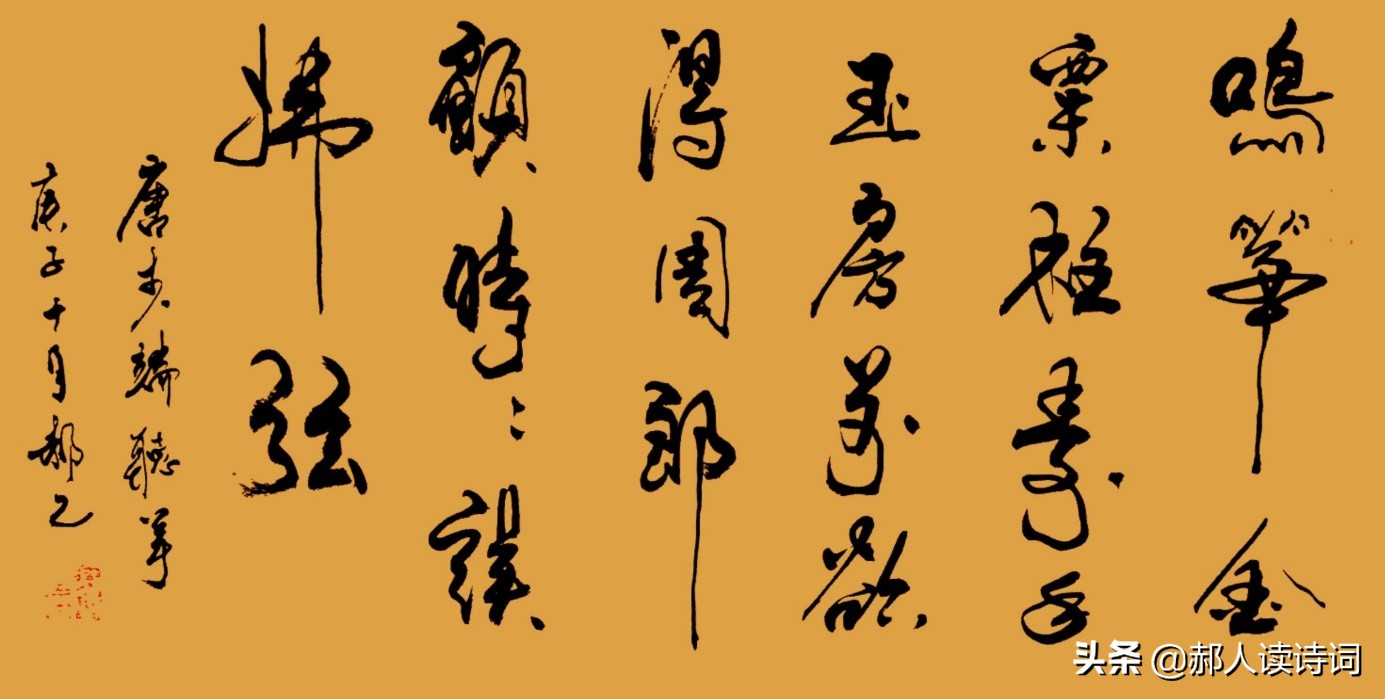 鳴筝金
粟柱素手
玉房前欲
得周郎
顧時々誤
拂弦
唐李端聽筝
庚子十月郝
头条 @郝人读诗词